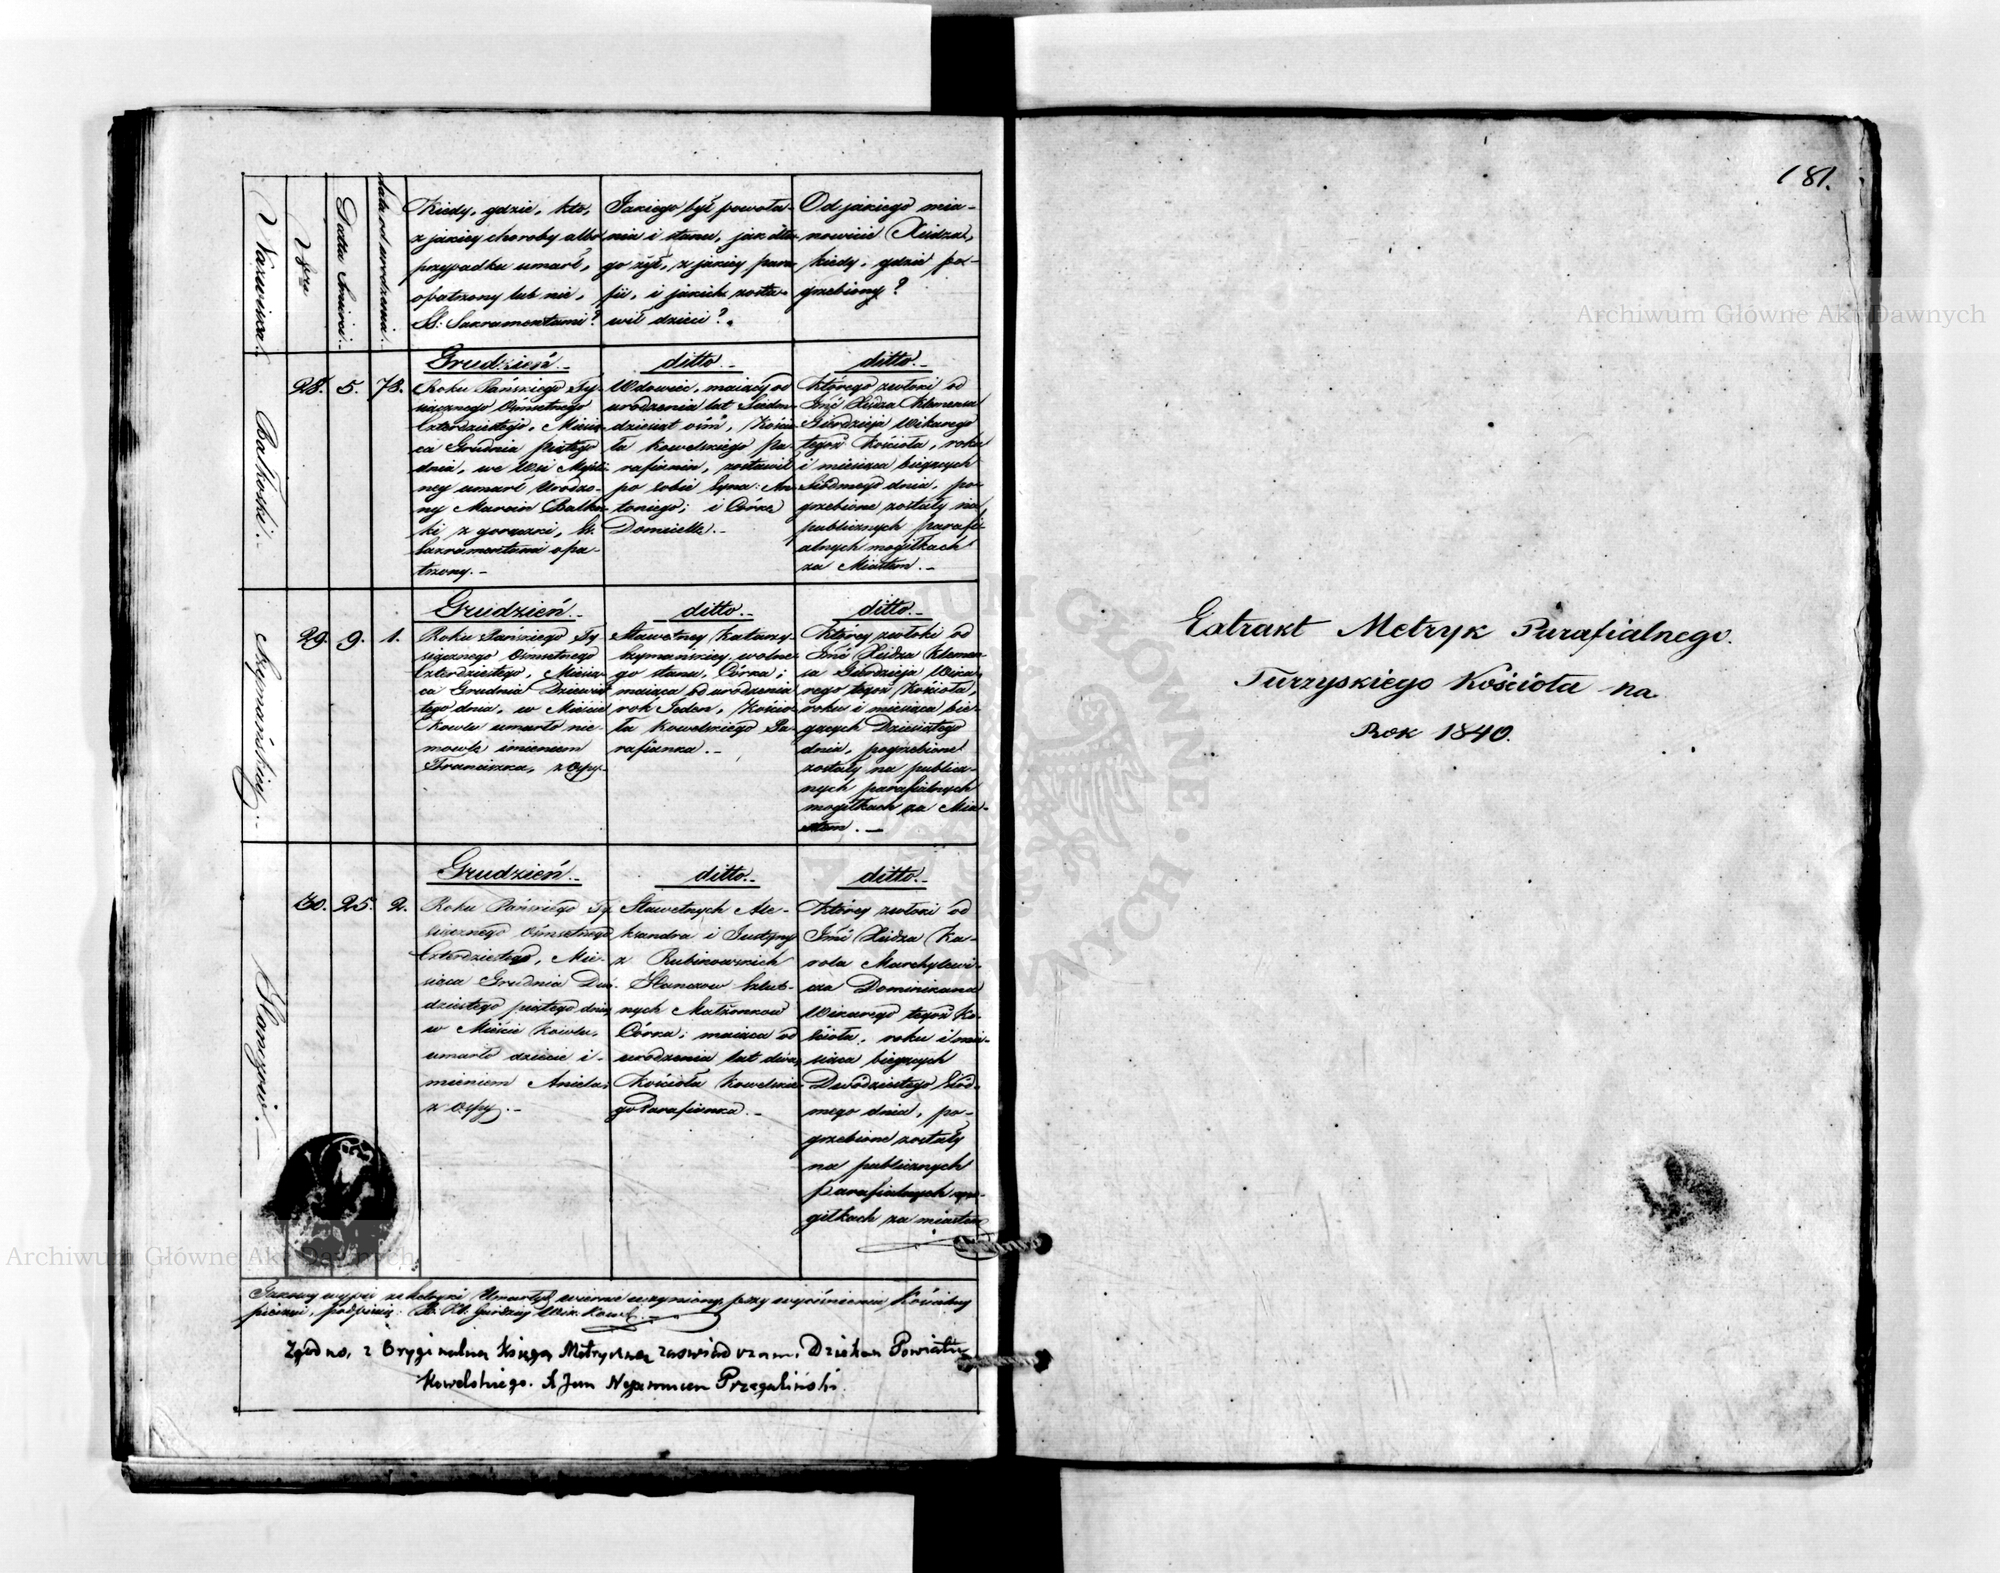 181.
Nazwiska.
Nru
Datta Śmierci.
Lata od urodzenia.
Kiedy, gdzie, kto,
z jakiey choroby albo
przypadku umarł,
opatrzony lub nie,
SS: Sakramentami?
Jakiego był powoła-
nia i stanu, jak dłu-
go żył, z jakiey para-
fii, i jakich zosta-
wił dzieci?
Od jakiego mia-
nowicie Xiędza,
kiedy, gdzie po-
grzebiony?
Balkoski.
28. 5. 78.
Grudzień.
Roku Pańskiego Ty-
siącznego Ośmsetnego
Czterdziestego, Miesią-
ca Grudnia piątego
dnia, we Wsi
umarł Urodzo-
ny Marcin Balkos-
ki z gorączki, SS.
Sakramentami opa-
trzony.
ditto.
Wdowiec, maiący od
urodzenia lat Siedm-
dziesiąt ośm, Kościo-
ła Kowelskiego pa-
rafianin, zostawił
po sobie Syna: An-
toniego; i Córkę
Domicellę.
ditto.
Którego zwłoki od
Jmć Xiędza Klemensa
Gierdzieja Wikarego
tegoż Kościoła, roku
i miesiąca bieżących
Siódmego dnia, po-
grzebione zostały na
publicznych parafi-
alnych mogiłkach
za Miastem.
Szymańskiey.
29. 9. 1.
Grudzień.
Roku Pańskiego Ty-
siącznego Ośmsetnego
Czterdziestego, Miesią-
ca Grudnia Dziewią-
tego dnia, w Mieście
Kowlu umarło nie-
mowlę imieniem
Franciszka, z Ospy.
ditto.
Sławetney Katarzy-
Szymańskiey wolne-
go stanu, Córka;
maiąca od urodzenia
rok Jeden, Kościo-
ła Kowelskiego Pa-
rafianka.
ditto.
Którey zwłoki od
Jmć Xiędza Klemen-
sa Gierdzieja Wika-
rego tegoż Kościoła,
roku i miesiąca bie-
żących Dziesiątego
dnia, pogrzebione
zostały na publicz-
nych parafialnych
mogiłkach za Mia-
stem.
30. 25. 2.
Grudzień.
Roku Pańskiego Ty-
siącznego Ośmsetnego
Czterdziestego, Mie-
siąca Grudnia Dwu-
dziestego piątego dnia,
w Mieście Kowlu,
umarło dziecie i-
mieniem Aniela,
z Ospy.
ditto.
Sławetnych Ale-
ksandra i Justyny
z Rubikowskich
Ślub-
nych Małżonkow
Córka; maiąca od
urodzenia lat dwa,
Kościoła Kowelskie-
go Parafianka.
ditto.
Którey zwłoki od
Jmć Xiędza Ka-
rola Marchylewi-
cza Dominikana
Wikarego tegoż Ko-
ścioła, roku i mie-
siąca bieżących
Dwódziestego Siód-
mego dnia, po-
grzebione zostały
na publicznych
parafialnych mo-
giłkach za miastem
Takowy wypis z Umarłych wiernie uczyniony, przy wyciśnieniu Kościelney
pieczęci, podpisuię: X. Kl: Gierdziey Wik. Kowel.
Zgodno, z Oryginalną Księgą Metryczną zaświadczam. Dziekan Powiatu
Kowelskiego. X Jan Nepomucen Przegaliński.
Extrakt Metryk Parafialnego
Turzyskiego Kościoła na
Rok 1840.
Archiwum Główne Akt Dawnych
Archiwum Główne Akt Dawnych